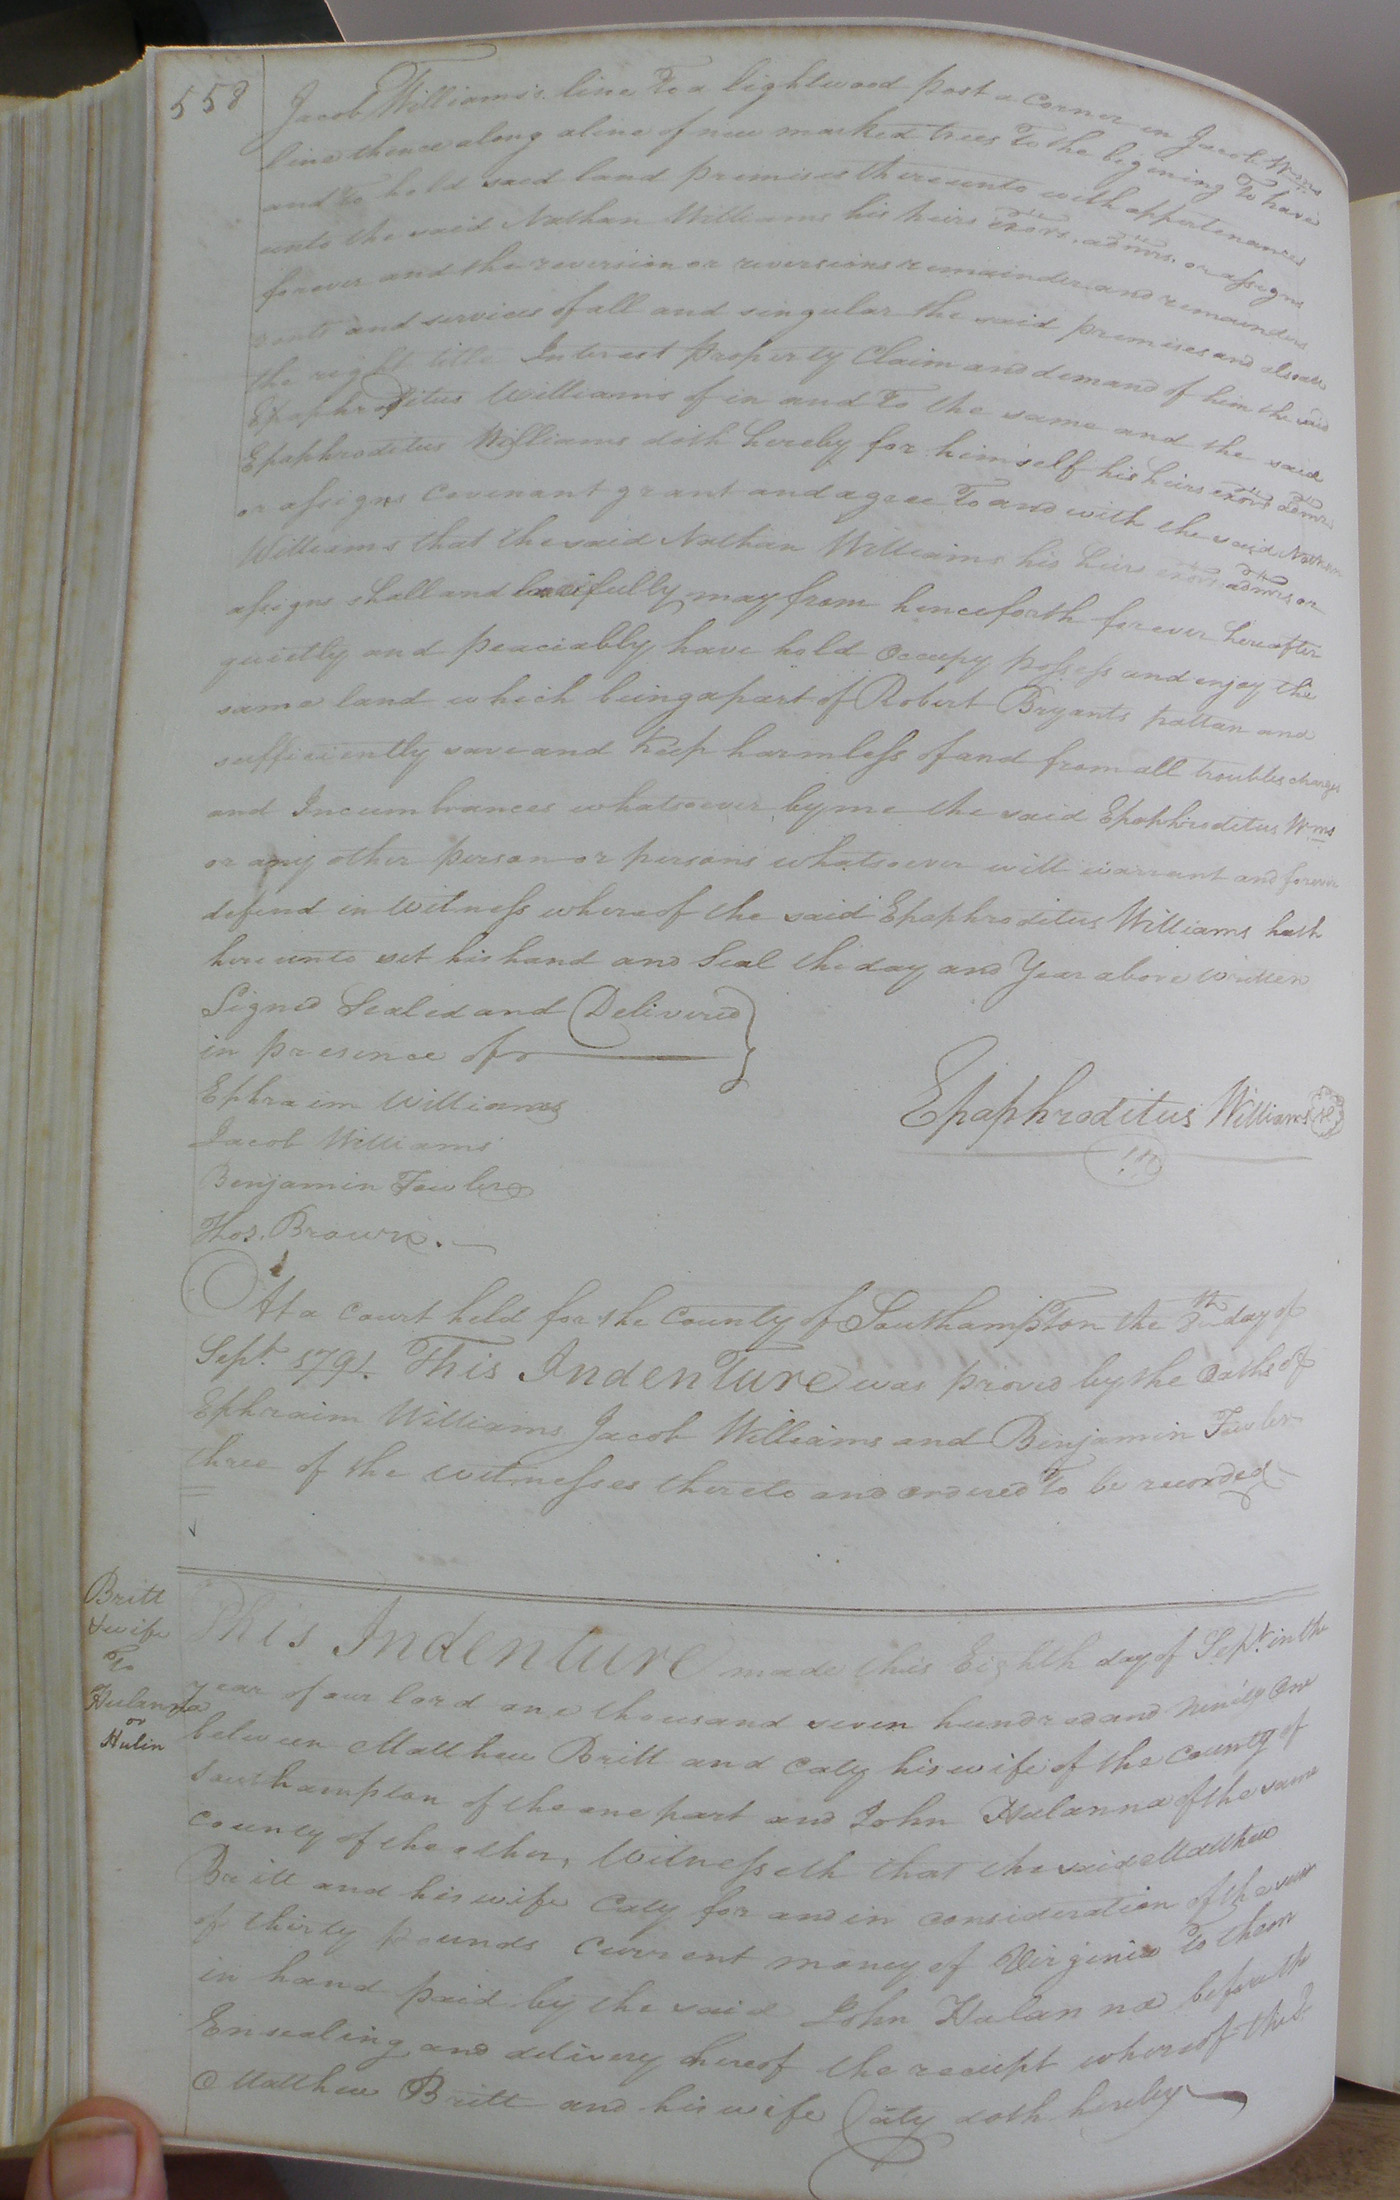 558
Jacob Williams's line To a lightwood post a corner in Jacob Wms
line thence along a line of new marked trees To the begening To have
and to hold said land premises thereunto with appertenances
unto the said Nathan Williams his heirs exors. admrs. or assigns
forever and the reversion or reversions remainder and remainders
rents and services of all and singular the said premises and also all
the right title Interest property Claim and demand of him the said
Epaphroditus Williams of in and To the same and the said
Epaphroditus Williams doth hereby for himself his heirs exors admrs
or assigns covenant grant and agree To and with the said Nathan
Williams that the said Nathan Williams his heirs exors. admrs. or
assigns shall and lawfully may from henceforth forever hereafter
quietly and peaciably have hold occupy possess and enjoy the
same land which being a part of Robert Bryants pattan and
sufficiently save and keep harmless of and from all troubles charges
and Incumbrances whatsoever by me the said Epaphroditus Wms
or any other person or persons whatsoever will warrant and forever
defend in Witness whereof the said Epaphroditus Williams hath
hereunto set his hand and Seal the day and Year above written
Signed Sealed and Delivered
in presence of
Ephraim Williams
Epaphroditus Williams
Jacob Williams
Benjamin Fowler
Thos. Brown.
At a court held for the County of Southampton the day of
Sept. 1791. This Indenture was proved by the Oaths of
Ephraim Williams Jacob Williams and Benjamin Fowler
three of the witnesses thereto and ordered To be recorded
Britt
& wife
To
Hulanna
or
Hulin
This Indenture made this Eighth day of Sept. in the
year of our lord one thousand seven hundred and Ninety One
between Matthew Britt and Caty his wife of the County of
Southampton of the one part and John Hulanna of the same
county of the other, Witnesseth that the said Matthew
Britt and his wife Caty for and in consideration of the sum
of thirty pounds current money of Virginia To them
in hand paid by the said John Hulanna before the
Ensealing and delivery hereof the receipt whereof the sd.
Matthew Britt and his wife Caty doth hereby